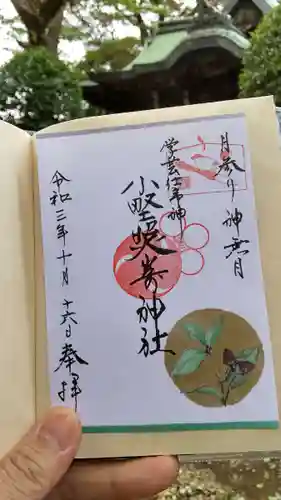 月参り 神無月
学芸仕事神
小野照崎神社
令和三年十月十六日
奉拝